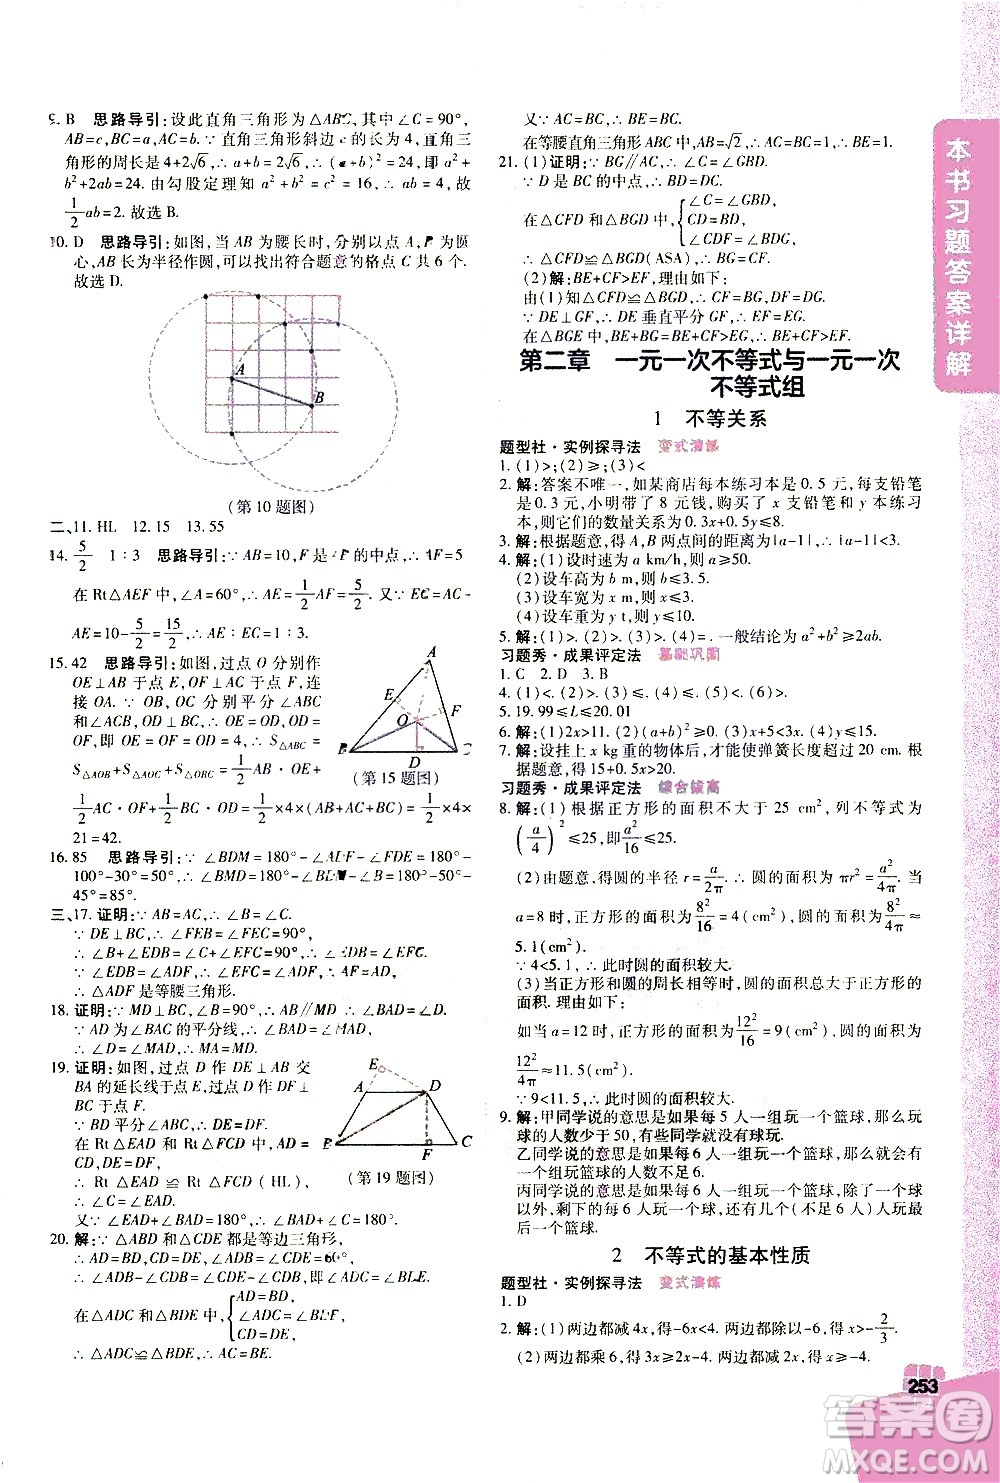 9. B 思路导引:设此直角三角形为△ABC,其中∠C=90°,
AB=c,BC=a,AC=b.∵直角三角形斜边c的长为4,直角三
角形的周长是4+2√6,∴a+b=2√6,∴(a+b)²=24,即a²+
b²+2ab=24.由勾股定理知a²+b²=c²=16,∴2ab=8,故
1/2ab=2.故选B.
10. D 思路导引:如图,当AB为腰长时,分别以点A,B为圆
心,AB长为半径作圆,可以找出符合题意的格点C共6个.
故选D.
A
B
(第10题图)
二、11. HL 12. 15 13. 55
14. 5/2 1:3 思路导引:∵AB=10,F是AB的中点,∴AF=5
在Rt△AEF中,∠A=60°,∴AE=1/2AF=5/2.又∵EC=AC-
AE=10-5/2=15/2,∴AE:EC=1:3.
15. 42 思路导引:如图,过点O分别作
OE⊥AB于点E,OF⊥AC于点F,连
接OA.∵OB,OC分别平分∠ABC
和∠ACB,OD⊥BC,∴OE=OD,OD
=OF,即OE=OF=OD=4,∴S△ABC=
S△AOB+S△AOC+S△OBC=1/2AB·OE+
1/2AC·OF+1/2CB·OD=1/2×4×(AB+AC+BC)=1/2×4×
21=42.
A
E
F
O
B
D
C
(第15题图)
16. 85 思路导引:∵∠BDM=180°-∠ADF-∠FDE=180°-
100°-30°=50°,∴∠BMD=180°-∠B-∠BDM=180°-50°-
45°=85°.
三、17. 证明:∵AB=AC,∴∠B=∠C.
∵DE⊥BC,∴∠FEB=∠FEC=90°,
∴∠B+∠EDB=∠C+∠EFC=90°,
∴∠EDB=∠EFC.∵∠EDB=∠ADF,
∴△ADF是等腰三角形.
18. 证明:∵MD⊥BC,∠B=90°,∴AB∥MD,∴∠BAD=∠D.
∵AD为∠BAC的平分线,∴∠BAD=∠MAD,
∴∠D=∠MAD,∴MA=MD.
19. 证明:如图,过点D作DE⊥AB交
BA的延长线于点E,过点D作DF⊥
BC于点F,∴∠E=∠DFC=90°.
∵BD平分∠ABC,∴DE=DF.
在Rt△EAD和Rt△FCD中,
∵AD=DC,DE=DF,
∴Rt△EAD≌Rt△FCD(HL),
∴∠C=∠EAD.
又∵∠BAD+∠EAD=180°,∴∠BAD+∠C=180°.
E
A
D
B
F
C
(第19题图)
20. 解:∵△ABD和△CDE都是等边三角形,
∴AD=BD,CD=DE,∠ADB=∠CDE=60°,
∴∠ADB+∠BDC=∠CDE+∠BDC,即∠ADC=∠BDE.
在△ADC和△BDE中,{AD=BD,
∠ADC=∠BDE,
CD=DE,
∴△ADC≌△BDE,∴AC=BE.
又∵AC=BC,∴BE=BC.
在等腰直角三角形ABC中,AB=√2,∴AC=BC=1,∴BE=1.
21. (1)证明:∵BG∥AC,∴∠C=∠GBD.
∵D是BC的中点,∴BD=DC.
在△CFD和△BGD中,{∠C=∠GBD,
CD=BD,
∠CDF=∠BDG,
∴△CFD≌△BGD(ASA),∴BG=CF.
(2)解:BE+CF>EF,理由如下:
由(1)知△CFD≌△BGD,∴CF=BG,GD=DF.
∵DE⊥GF,∴DE垂直平分GF,∴GE=EF.
在△BGE中,BE+BG=BE+CF>GE,∴BE+CF>EF.
第二章 一元一次不等式与一元一次
不等式组
1 不等关系
题型社·实例探寻法 变式演练
1. (1)>;(2)≥;(3)<
2. 解:答案不唯一,如某商店每本练习本是0.5元,每支铅笔
是0.3元,小明带了8元钱,购买了x支铅笔和y本练习
本,则它们的数量关系为0.3x+0.5y≤8.
3. 解:根据题意,得A,B两点间的距离为|a-1|,∴|a-1|<3.
4. 解:(1)设时速为a km/h,则a≥50.
(2)设车高为b m,则b≤3.5.
(3)设车宽为x m,则x≤3.
(4)设车重为y t,则y≤10.
5. 解:(1)>.(2)>.(3)=.(4)=.一般结论为a²+b²≥2ab.
习题秀·成果评定法 基础巩固
1. C 2. D 3. B
4. (1)<.(2)>.(3)>.(4)>.(5)<.(6)>.
5. 19.99≤L≤20.01
6. 解:(1)2x>11.(2)(a+b)²≥0.(3)x+5<7.
7. 解:设挂上x kg重的物体后,才能使弹簧长度超过20 cm.
根据题意,得15+0.5x>20.
习题秀·成果评定法 综合拔高
8. 解:(1)根据正方形的面积不大于25 cm²,列不等式为
(a/4)²≤25,即a²/16≤25.
(2)由题意,得圆的半径r=a/2π.∴圆的面积为πr²=a²/4π.当
a=8时,正方形的面积为8²/16=4(cm²),圆的面积为8²/4π≈
5.1(cm²).
∵4<5.1,∴此时圆的面积较大.
(3)当正方形的周长与圆的周长相等时,圆的面积>正方形的
面积.理由如下:
如当a=12时,正方形的面积为12²/16=9(cm²),圆的面积为
12²/4π≈11.5(cm²).
∵9<11.5,∴此时圆的面积较大.
9. 解:甲同学说的意思是如果每5人一组玩一个篮球,那么玩
球的人数少于50,有些同学就没有球玩.
乙同学说的意思是如果每6人一组玩一个篮球,那么就会
有一个组玩篮球的人数不足6.
丙同学说的意思是如果每6人一组玩一个球,除了一个球
以外,剩下的每6人玩一个球,还有几个(不足6)人玩另
一个篮球.
2 不等式的基本性质
题型社·实例探寻法 变式演练
1. D
2. 解:(1)两边都减4,得-6x<4.两边都除以-6,得x>-2/3.
(2)两边都乘6,得3x>4x-6.两边都减4x,得-x>-6.
本书习题答案详解
253
答案圈
MXQE.COM